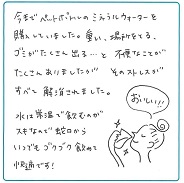 今までペットボトルのミネラルウォーターを
購入していました。重い、場所をとる、
ゴミがたくさん出る…と 不便なことが
たくさんありましたが そのストレスが
すべて 解消されました。
水は常温で飲むのが
スキなので 蛇口から
いつでもゴクゴク飲めて
快適です!
おいしい!!